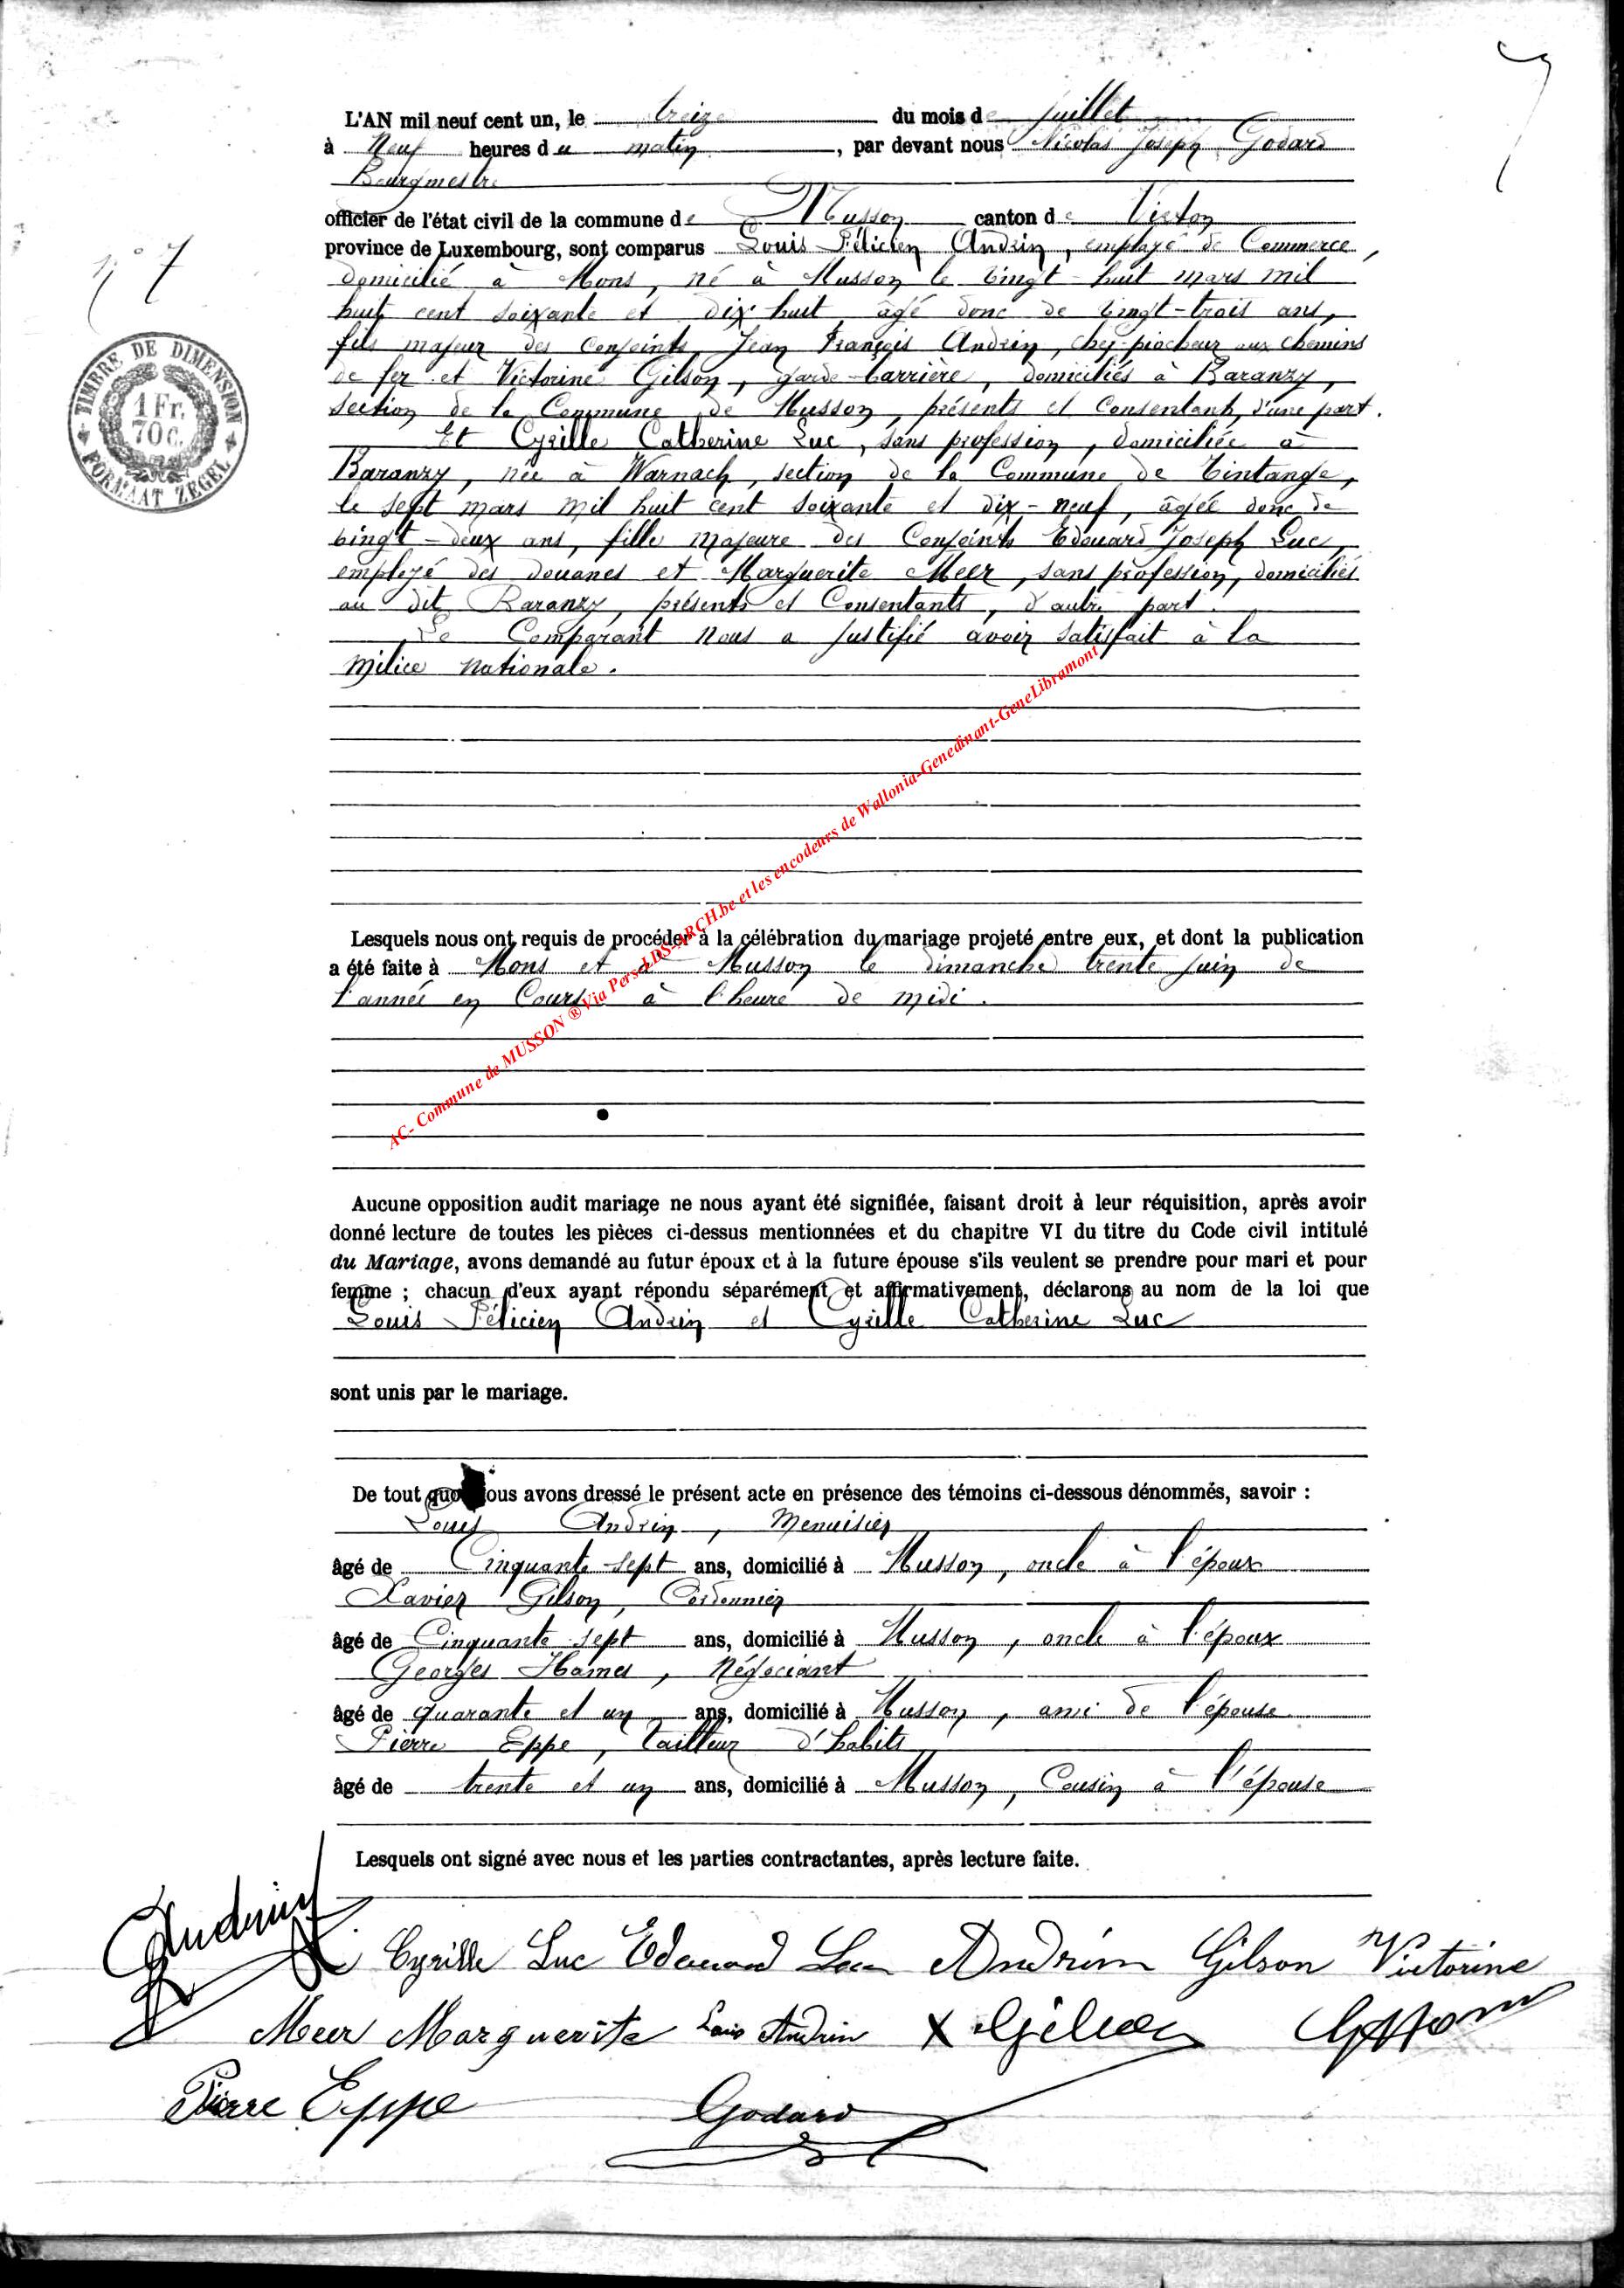 L'AN mil neuf cent un, le treize du mois de juillet
à Neuf heures du matin, par devant nous Nicolas Joseph Godard
Bourgmestre
officier de l'état civil de la commune de Musson canton de Virton
province de Luxembourg, sont comparus Louis Félicien Andrin, employé de Commerce,
domicilié à Mons, né à Musson le vingt-huit mars mil
huit cent soixante et dix huit, âgé donc de vingt-trois ans,
fils majeur des Conjoints Jean François Andrin, chef-piocheur aux chemins
de fer et Victorine Gilson, garde-barrière, domiciliés à Baranzy,
section de la Commune de Musson, présents et Consentants, d'une part.
Et Cyrille Catherine Luc, sans profession, domiciliée à
Baranzy, née à Warnach, section de la Commune de Tintange,
le sept mars mil huit cent soixante et dix-neuf, âgée donc de
vingt-deux ans, fille majeure des Conjoints Edouard Joseph Luc,
employé des douanes et Marguerite Meer, sans profession, domiciliés
au dit Baranzy, présents et Consentants, d'autre part.
Le Comparant nous a justifié avoir satisfait à la
milice nationale.
n° 7
TIMBRE DE DIMENSION
1 Fr.
70 C.
FORMAAT ZEGEL
AC- Commune de MUSSON ® Via Pers-LDS-ARCH.be et les encodeurs de Wallonia-Genedinant-GeneLibramont
Lesquels nous ont requis de procéder à la célébration du mariage projeté entre eux, et dont la publication
a été faite à Mons et à Musson le dimanche trente juin de
l'année en Cours à l'heure de midi.
Aucune opposition audit mariage ne nous ayant été signifiée, faisant droit à leur réquisition, après avoir
donné lecture de toutes les pièces ci-dessus mentionnées et du chapitre VI du titre du Code civil intitulé
du Mariage, avons demandé au futur époux et à la future épouse s'ils veulent se prendre pour mari et pour
femme ; chacun d'eux ayant répondu séparément et affirmativement, déclarons au nom de la loi que
Louis Félicien Andrin et Cyrille Catherine Luc
sont unis par le mariage.
De tout quoi nous avons dressé le présent acte en présence des témoins ci-dessous dénommés, savoir :
Louis Andrin, Menuisier
âgé de Cinquante-sept ans, domicilié à Musson, oncle à l'époux
Xavier Gilson, Cordonnier
âgé de Cinquante sept ans, domicilié à Musson, oncle à l'époux
Georges Hames, Négociant
âgé de quarante et un ans, domicilié à Musson, ami de l'épouse
Pierre Eppe, Tailleur d'habits
âgé de trente et un ans, domicilié à Musson, Cousin à l'épouse
Lesquels ont signé avec nous et les parties contractantes, après lecture faite.
Andrin Cyrille Luc Edouard Luc Andrin Gilson Victorine
Meer Marguerite Louis Andrin X Gilson
Pierre Eppe Godard